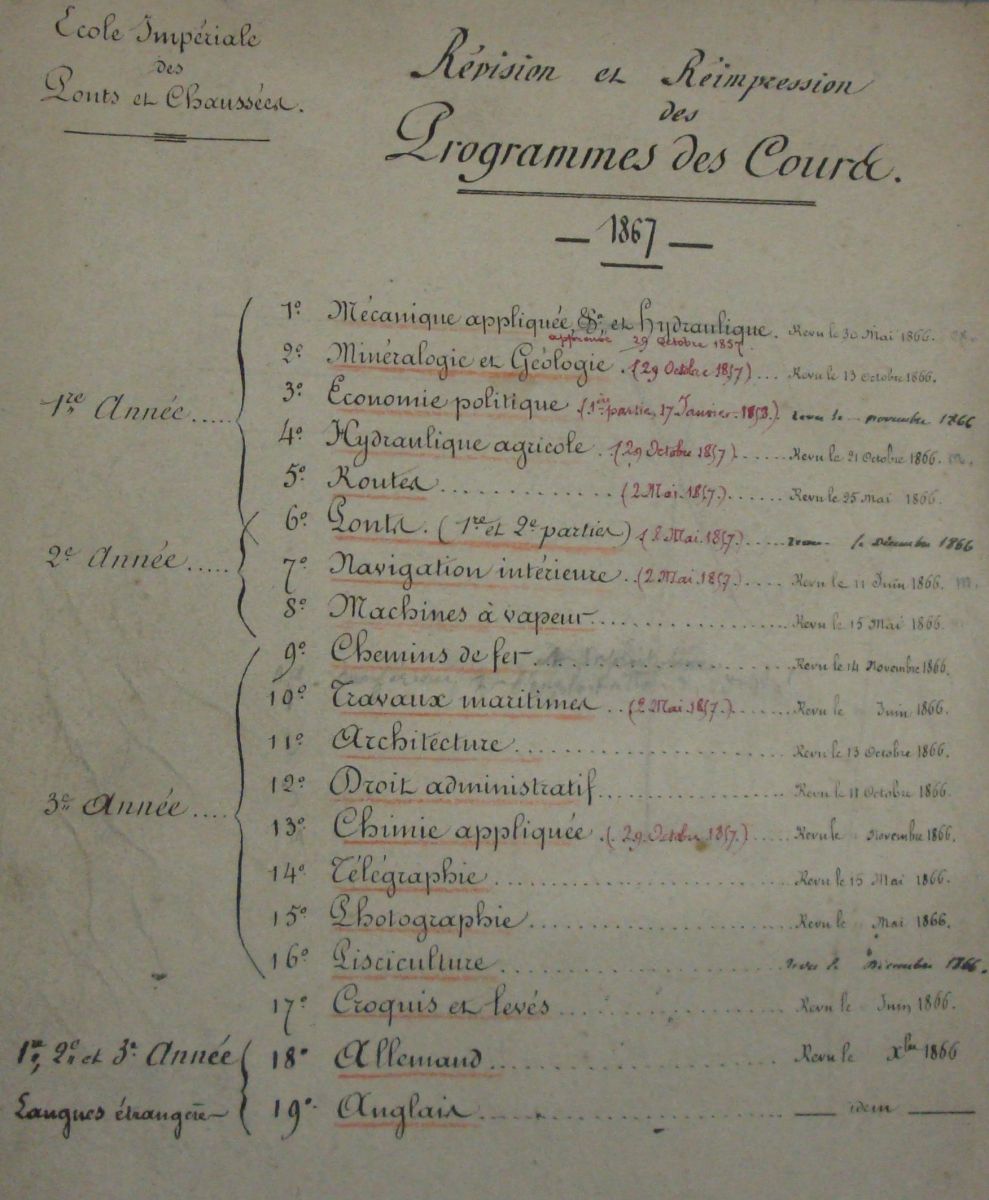 Ecole Impériale
des
Ponts et Chaussées.
Révision et Réimpression
des
Programmes des Cours.
— 1867 —
1re Année.....
1º Mécanique appliquée et Hydraulique. Revu le 30 Mai 1866.
approuvé 29 Octobre 1857.
2º Minéralogie et Géologie. (29 Octobre 1857)... Revu le 13 Octobre 1866.
3º Economie politique (1ère partie, 17 Janvier 1853.) revu le novembre 1866
4º Hydraulique agricole. (29 Octobre 1857)...... Revu le 21 Octobre 1866.
5º Routes.................. (2 Mai 1857.)...... Revu le 25 Mai 1866.
2e Année.....
6º Ponts. (1re et 2e parties) (2 Mai 1857.)..... le Décembre 1866
7º Navigation intérieure..(2 Mai 1857.).... Revu le 11 Juin 1866.
8º Machines à vapeur.................. Revu le 15 Mai 1866.
3e Année....
9º Chemins de fer.................. Revu le 14 Novembre 1866.
10º Travaux maritimes..(2 Mai 1857.)...... Revu le Juin 1866.
11º Architecture.................. Revu le 13 Octobre 1866.
12º Droit administratif.................. Revu le 11 Octobre 1866.
13º Chimie appliquée.(29 Octobre 1857.)..... Revu le Novembre 1866.
14º Télégraphie.................. Revu le 15 Mai 1866.
15º Photographie.................. Revu le Mai 1866.
16º Pisciculture.................. revu le Décembre 1866.
17º Croquis et levés.................. Revu le Juin 1866.
1re, 2e et 3e Année
Langues étrangères
18º Allemand.................. Revu le Xbre 1866
19º Anglais.................. — idem —